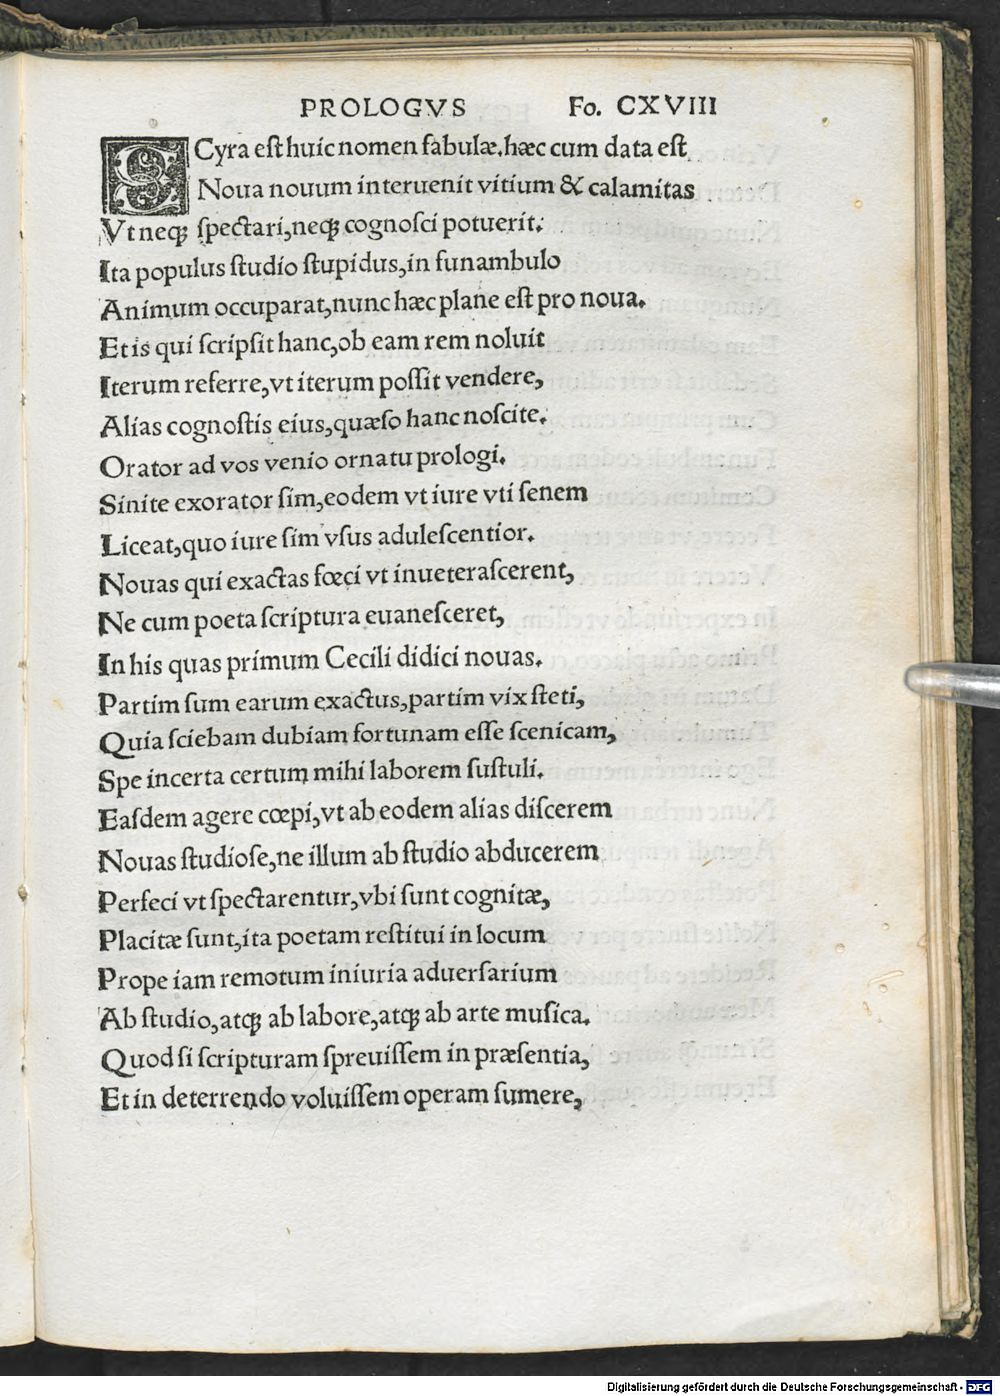 PROLOGVS Fo. CXVIII
SCyra eſt huic nomen fabulæ.hæc cum data eſt
Noua nouum interuenit vitium & calamitas
Vt neqꝫ ſpectari,neqꝫ cognoſci potuerit:
Ita populus ſtudio ſtupidus,in funambulo
Animum occuparat,nunc hæc plane eſt pro noua.
Et is qui ſcripſit hanc,ob eam rem noluit
Iterum referre,vt iterum poſſit vendere,
Alias cognoſtis eius,quæſo hanc noſcite:
Orator ad vos venio ornatu prologi.
Sinite exorator ſim,eodem vt iure vti ſenem
Liceat,quo iure ſim vſus aduleſcentior.
Nouas qui exactas fœci vt inueteraſcerent,
Ne cum poeta ſcriptura euaneſceret,
In his quas primum Cecili didici nouas.
Partim ſum earum exactus,partim vix ſteti,
Quia ſciebam dubiam fortunam eſſe ſcenicam,
Spe incerta certum mihi laborem ſuſtuli.
Eaſdem agere cœpi,vt ab eodem alias diſcerem
Nouas ſtudioſe,ne illum ab ſtudio abducerem
Perfeci vt ſpectarentur,vbi ſunt cognitæ,
Placitæ ſunt,ita poetam reſtitui in locum
Prope iam remotum iniuria aduerſarium
Ab ſtudio,atqꝫ ab labore,atqꝫ ab arte muſica.
Quod ſi ſcripturam ſpreuiſſem in præſentia,
Et in deterrendo voluiſſem operam ſumere,
Digitalisierung gefördert durch die Deutsche Forschungsgemeinschaft - DFG